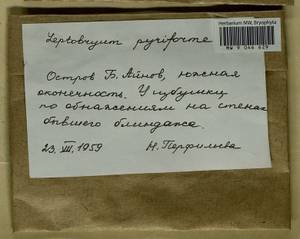 Herbarium MW, Bryophyta
MW 9 046 629
Leptobryum pyriforme
Остров Б. Айнов, южная
оконечность. У избушки
по обнажениям на стенах
бывшего блиндажа.
23. VII. 1959 Н. Перфильева